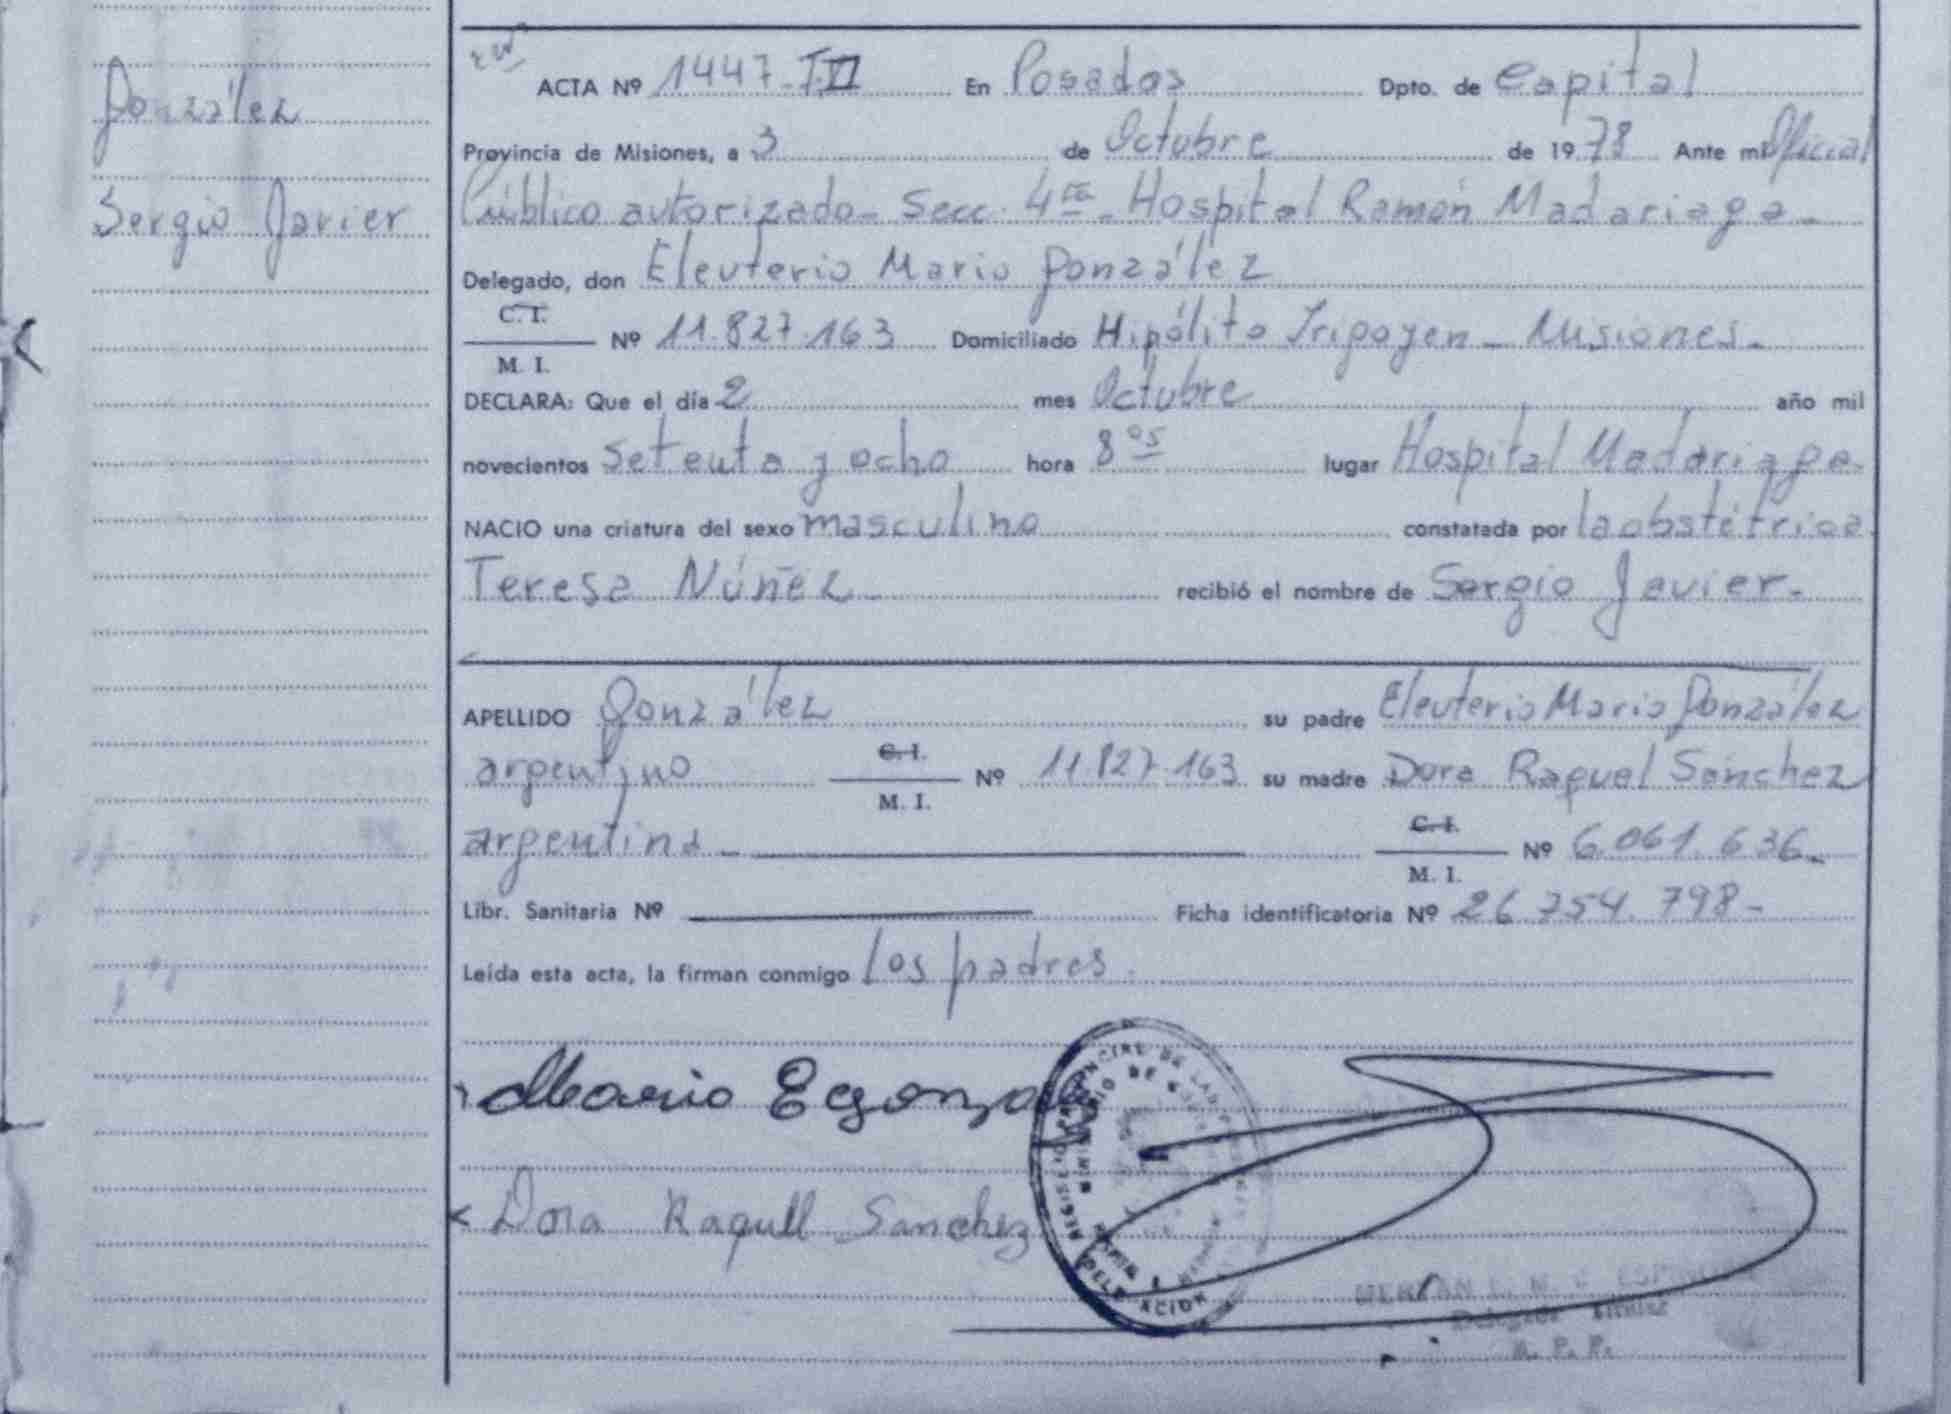 González
Sergio Javier
ACTA Nº 1447-T.VI En Posadas Dpto. de Capital
Provincia de Misiones, a 3 de Octubre de 1978 Ante mi Oficial
Público autorizado- Secc. 4ta - Hospital Ramón Madariaga.
Delegado, don Eleuterio Mario González
C. I.
M. I.
Nº 11.827.163 Domiciliado Hipólito Irigoyen - Misiones.
DECLARA: Que el día 2 mes Octubre año mil
novecientos setenta y ocho hora 8 05 lugar Hospital Madariaga.
NACIO una criatura del sexo masculino constatada por la obstétrica
Teresa Núñez - recibió el nombre de Sergio Javier.
APELLIDO González su padre Eleuterio Mario González
argentino C. I. M. I. Nº 11.827.163 su madre Dora Raquel Sánchez
argentina - C. I. M. I. Nº 6.061.636.
Libr. Sanitaria Nº Ficha identificatoria Nº 26.754.798-
Leída esta acta, la firman conmigo los padres.
Mario E Gonza
Dora Raquel Sanchez
DE LAS
MINISTERIO DE
DELEGACION
Delegado Titular
R. P. P.